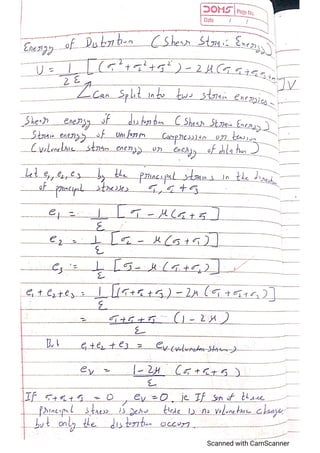 DOMS Page No.
Date / /
Energy of Distortion (Shear Strain Energy)
U = 1/2E [(σ₁²+σ₂²+σ₃²) - 2μ(σ₁σ₂+σ₂σ₃+σ₃σ₁)] V
Can Split into two strain energies
Shear energy of distortion (Shear Strain Energy)
Strain energy of uniform compression or tension
(volumetric strain energy or energy of dilation)
Let e₁, e₂, e₃ be the principal strains in the direction
of principal stresses σ₁, σ₂ + σ₃
e₁ = 1/E [σ₁ - μ(σ₂+σ₃)]
e₂ = 1/E [σ₂ - μ(σ₁+σ₃)]
e₃ = 1/E [σ₃ - μ(σ₁+σ₂)]
e₁+e₂+e₃ = 1/E [(σ₁+σ₂+σ₃) - 2μ(σ₁+σ₂+σ₃)]
= σ₁+σ₂+σ₃/E (1-2μ)
But e₁+e₂+e₃ = eᵥ (volumetric strain)
eᵥ = 1-2μ/E (σ₁+σ₂+σ₃)
If σ₁+σ₂+σ₃ = 0, eᵥ = 0. ie If sum of three
principal stress is zero there is no volumetric change,
but only the distortion occurs.
Scanned with CamScanner